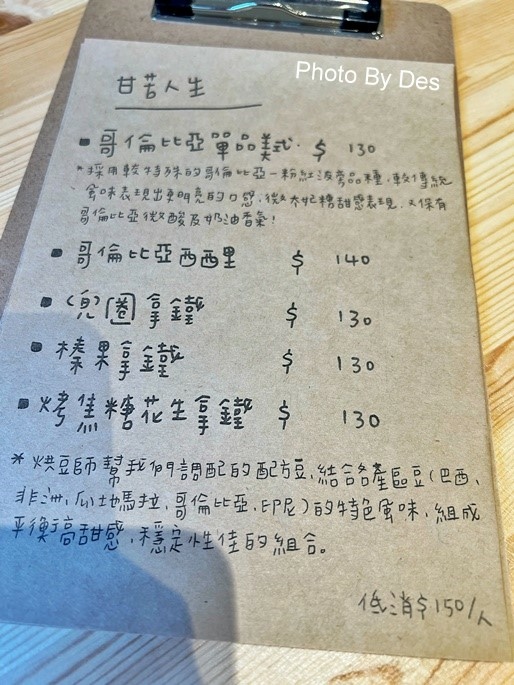 Photo By Des
甘苦人生
哥倫比亞單品美式. $ 130
*採用較特殊的哥倫比亞-粉紅波旁品種,較傳統
風味表現出更明亮的口感,微太妃糖甜感表現,又保有
哥倫比亞微酸及奶油香氣!
哥倫比亞西西里 $ 140
(兜)圈拿鐵 $ 130
榛果拿鐵 $ 130
烤焦糖花生拿鐵 $ 130
*烘豆師幫我們調配的配方豆,結合各產區豆(巴西、
非洲,瓜地馬拉,哥倫比亞,印尼)的特色風味,組成
平衡高甜感,穩定性佳的組合。
低消$150/人